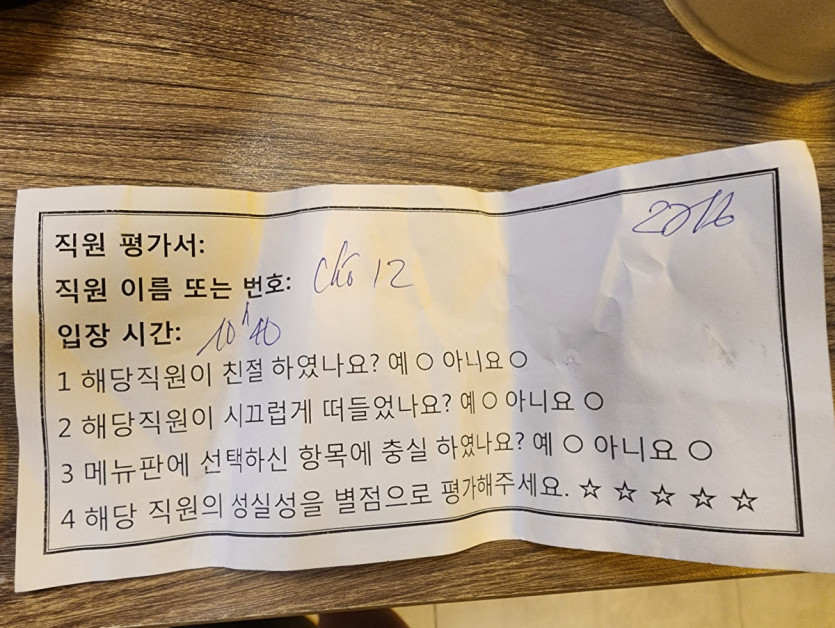 직원 평가서:
직원 이름 또는 번호: cho 12
입장 시간: 10h40
1 해당직원이 친절 하였나요? 예 ○ 아니요 ○
2 해당직원이 시끄럽게 떠들었나요? 예 ○ 아니요 ○
3 메뉴판에 선택하신 항목에 충실 하였나요? 예 ○ 아니요 ○
4 해당 직원의 성실성을 별점으로 평가해주세요. ☆ ☆ ☆ ☆ ☆